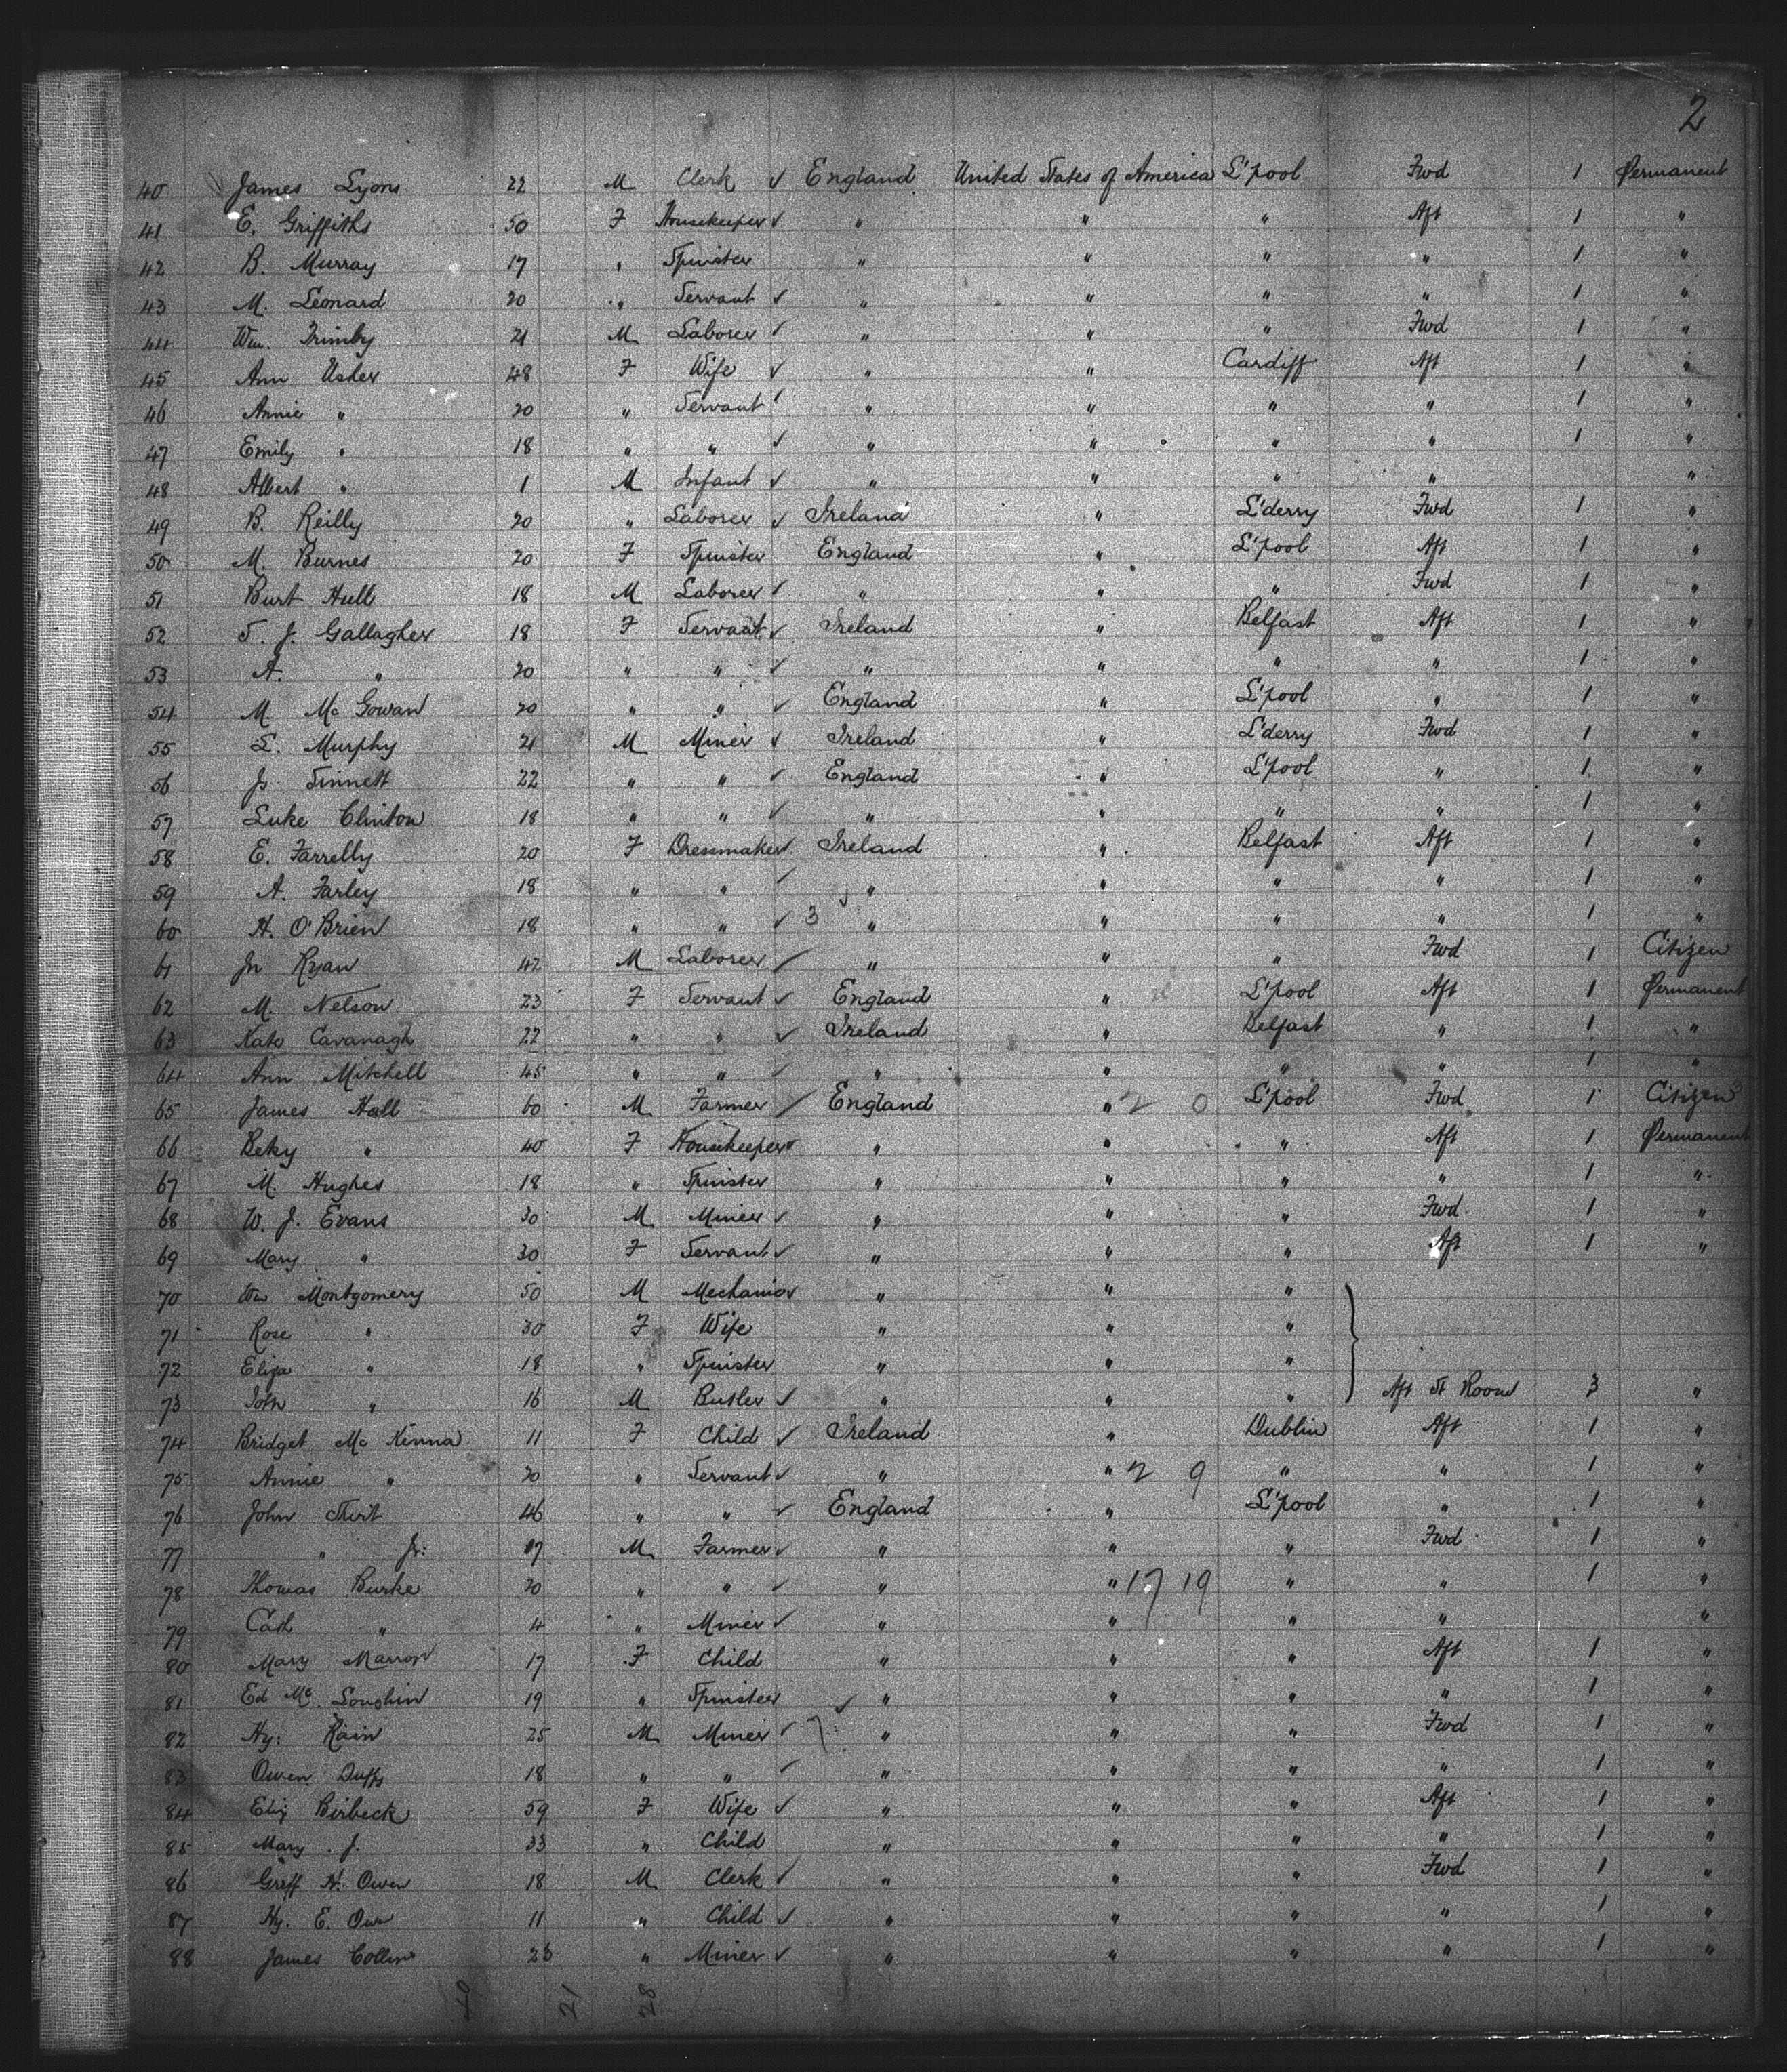 2
40 James Lyons 22 M Clerk ✓ England United States of America L'pool Fwd 1 Permanent
41 E. Griffiths 50 F Housekeeper ✓ " " " Aft 1 "
42 B. Murray 17 " Spinster " " " " 1 "
43 M. Leonard 20 " Servant ✓ " " " " 1 "
44 Wm. Trimby 21 M Laborer ✓ " " " Fwd 1 "
45 Ann Usher 48 F Wife ✓ " " Cardiff Aft 1 "
46 Annie " 20 " Servant ✓ " " " " 1 "
47 Emily " 18 " " ✓ " " " " 1 "
48 Albert " 1 M Infant ✓ " " " " "
49 B. Reilly 20 " Laborer ✓ Ireland " L'derry Fwd 1 "
50 M. Burnes 20 F Spinster England " L'pool Aft 1 "
51 Burt Hull 18 M Laborer ✓ " " " Fwd 1 "
52 S. J. Gallagher 18 F Servant ✓ Ireland " Belfast Aft 1 "
53 A. " 20 " " ✓ " " " " 1 "
54 M. Mc Gowan 20 " " ✓ England " L'pool " 1 "
55 L. Murphy 21 M Miner ✓ Ireland " L'derry Fwd 1 "
56 Js Sinnett 22 " " ✓ England " L'pool " 1 "
57 Luke Clinton 18 " " ✓ " " " " 1 "
58 E. Farrelly 20 F Dressmaker ✓ Ireland " Belfast Aft 1 "
59 A. Farley 18 " " ✓ " " " " 1 "
60 H. O'Brien 18 " " ✓ 3 " " " " 1 "
61 Jn Ryan 42 M Laborer ✓ " " " Fwd 1 Citizen
62 M. Nelson 23 F Servant ✓ England " L'pool Aft 1 Permanent
63 Kate Cavanagh 22 " " ✓ Ireland " Belfast " 1 "
64 Ann Mitchell 45 " " ✓ " " " " 1 "
65 James Hall 60 M Farmer ✓ England " 2 0 L'pool Fwd 1 Citizen
66 Beky " 40 F Housekeeper ✓ " " " Aft 1 Permanent
67 M. Hughes 18 " Spinster " " " " 1 "
68 W. J. Evans 30 M Miner ✓ " " " Fwd 1 "
69 Mary " 30 F Servant ✓ " " " Aft 1 "
70 Wm Montgomery 50 M Mechanic ✓ " " "
71 Rose " 30 F Wife " " "
72 Eliza " 18 " Spinster " " "
73 " 16 M Butler ✓ " " " Aft St Room 3 "
74 Bridget Mc Kenna 11 F Child ✓ Ireland " Dublin Aft 1 "
75 Annie " 20 " Servant ✓ " " 2 9 " " 1 "
76 John 46 " " ✓ England " L'pool " 1 "
77 " Jr: 17 M Farmer ✓ " " " Fwd 1 "
78 Thomas Burke 20 " " ✓ " " 17 19 " " 1 "
79 Cath " 4 " Miner ✓ " " " " "
80 Mary Marron 17 F Child " " " Aft 1 "
81 Ed Mc. Loughin 19 " Spinster ✓ " " " " 1 "
82 Hy: Kain 25 M Miner ✓ 7 " " " Fwd 1 "
83 Owen Duffy 18 " " ✓ " " " " 1 "
84 Eliz Birbeck 59 F Wife ✓ " " " Aft 1 "
85 Mary . J. 33 " Child " " " " 1 "
86 Griff H. Owen 18 M Clerk ✓ " " " Fwd 1 "
87 Hy. E. Owen 11 " Child ✓ " " " " 1 "
88 James Collins 23 " Miner ✓ " " " " 1 "
40 21 28